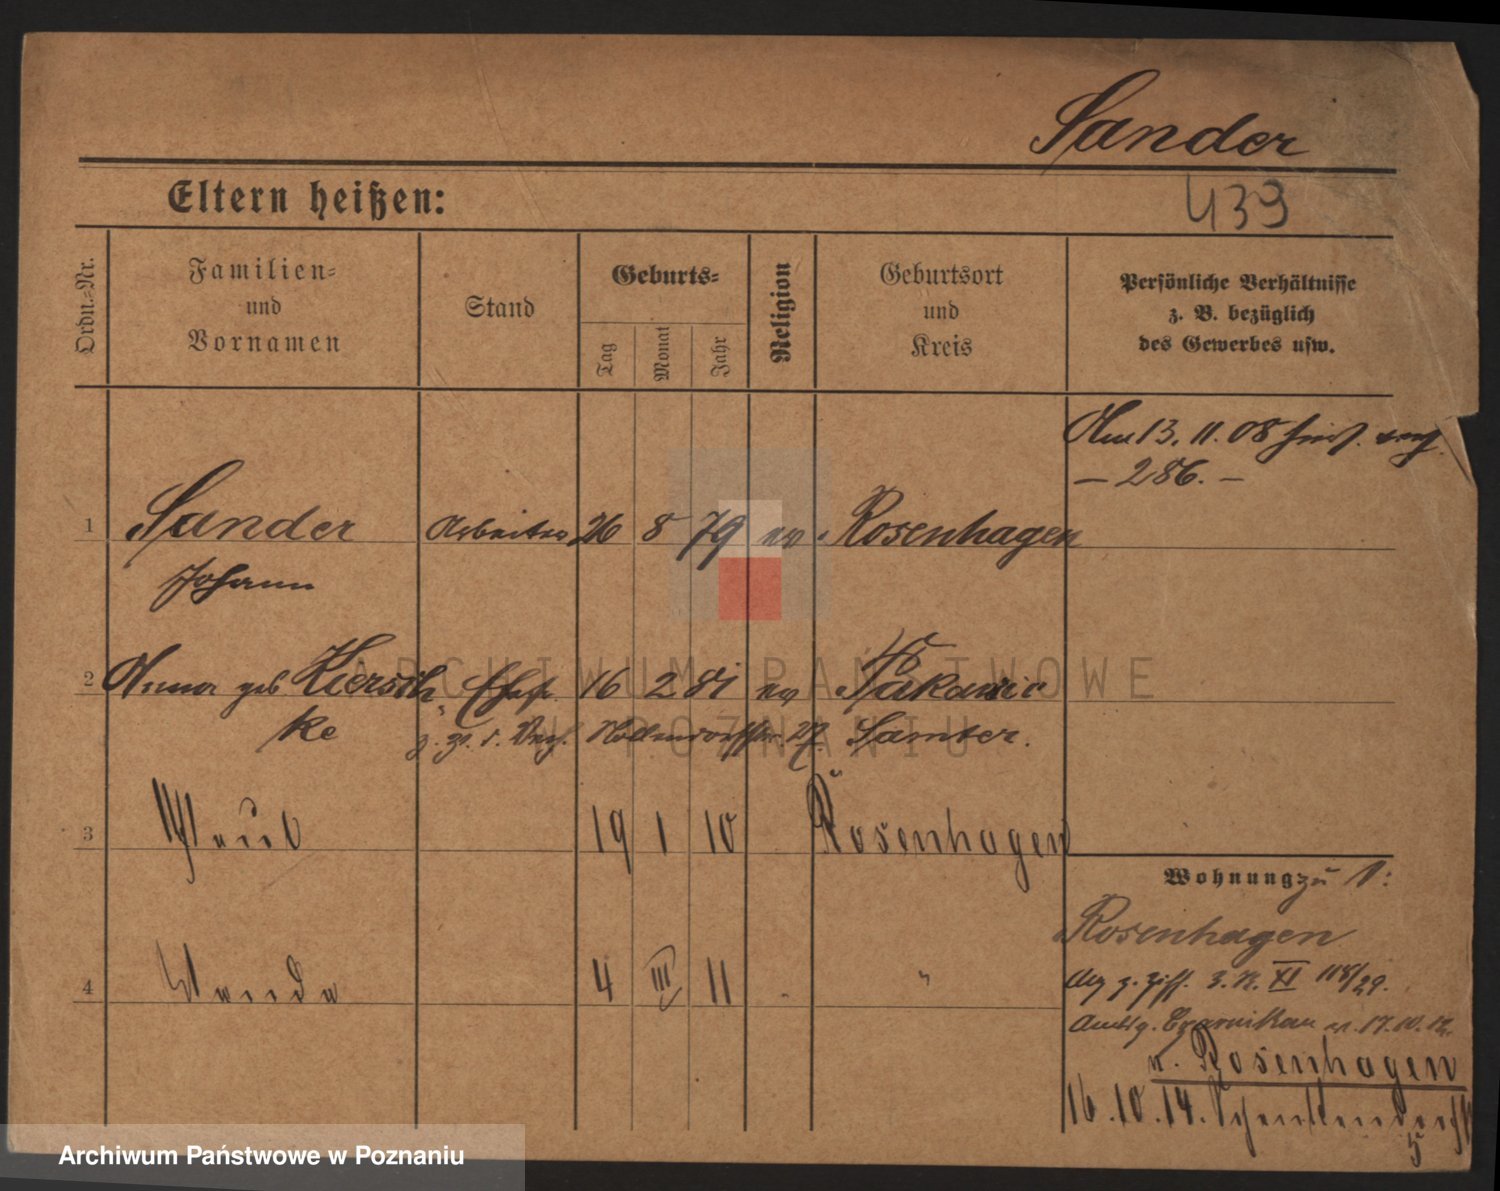 Sander
439
Eltern heißen:
Ordn.=Nr.
Familien=
und
Vornamen
Stand
Geburts=
Tag
Monat
Jahr
Religion
Geburtsort
und
Kreis
Persönliche Verhältnisse
z. B. bezüglich
des Gewerbes usw.
Am 13. 11. 08
– 286. –
1 Sander Arbeiter 26 8 79 ev. Rosenhagen
Johann
2 Anna geb Kiersch Ehefr. 16 2 81 ev
ke z. Zt. Samter.
3 Paul 19 1 10 Rosenhagen
Wohnung zu 1:
Rosenhagen
4 Wanda 4 III 11 "
z. Ziff. 3. N. XI 118/29.
Amtsg. Czarnikau v. 17. 10. 12.
n. Rosenhagen
16.10.14. Schenkendorfstr
5
ARCHIWUM PAŃSTWOWE
W POZNANIU
Archiwum Państwowe w Poznaniu